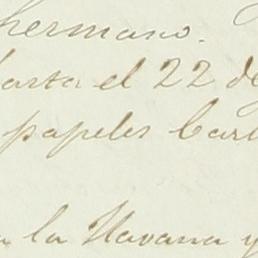 hermano.
hasta el 22 de
papeles Car
la Havana y